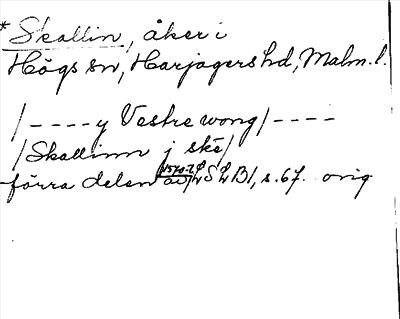 *Skallin, åker i
Högs sn, Harjagers hd, Malm. l.
/ - - - - y Vestre wong / - - - -
/ Skallinn j skē /
förra delen av S 2 B 1, s. 67. orig